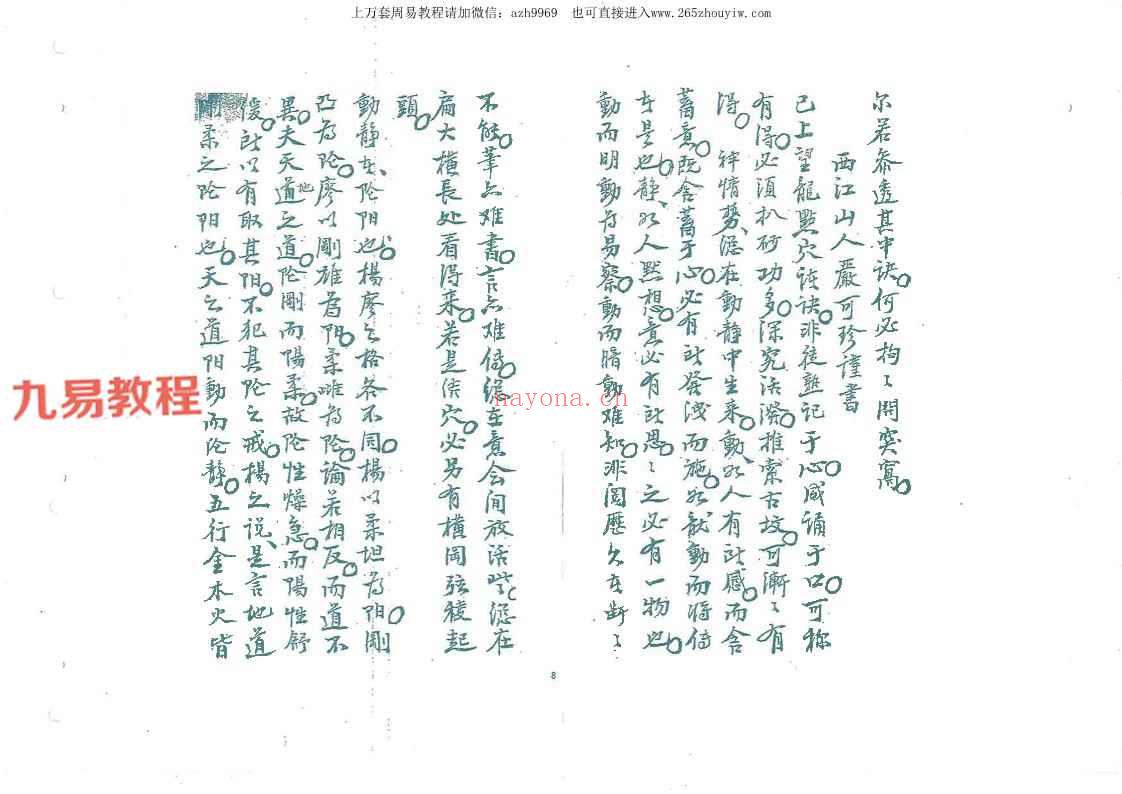 上万套周易教程请加微信：azh9969　也可直接进入www.265zhouyiw.com
尔若叅透其中訣何必拘〻開突窩
西江山人嚴可珍謹書
已上望龍點穴訣非徒熟記于心咸誦于口可称
有得必須扒砂功多深究法深推索古坟可漸〻有
得　　情势總在動靜中生来動如人有所感而含
蓄意既含蓄于心必有所發洩而施如龍動而將
在是也靜如人默想意必有所思〻之必有一物也
動而明動為易察動而暗動难知非閲歷久在
不能筆亦难書言亦难　總在意会间放活　總在
扁大横長处看得来若是侠穴必另有横岡弦稜起
頭
動靜在陰阳也楊廖之格各不同楊以柔坦為阳剛
凸為陰廖以剛雄為阳柔雌為陰論若相反而道不
異夫天道地之道陰剛而陽柔故陰性燥急而陽性舒
緩所以有取其阳不犯其陰之戒楊之说是言地道
剛柔之陰阳也天之道阳動而陰靜五行金木火皆
九易教程
nayona.cn
8